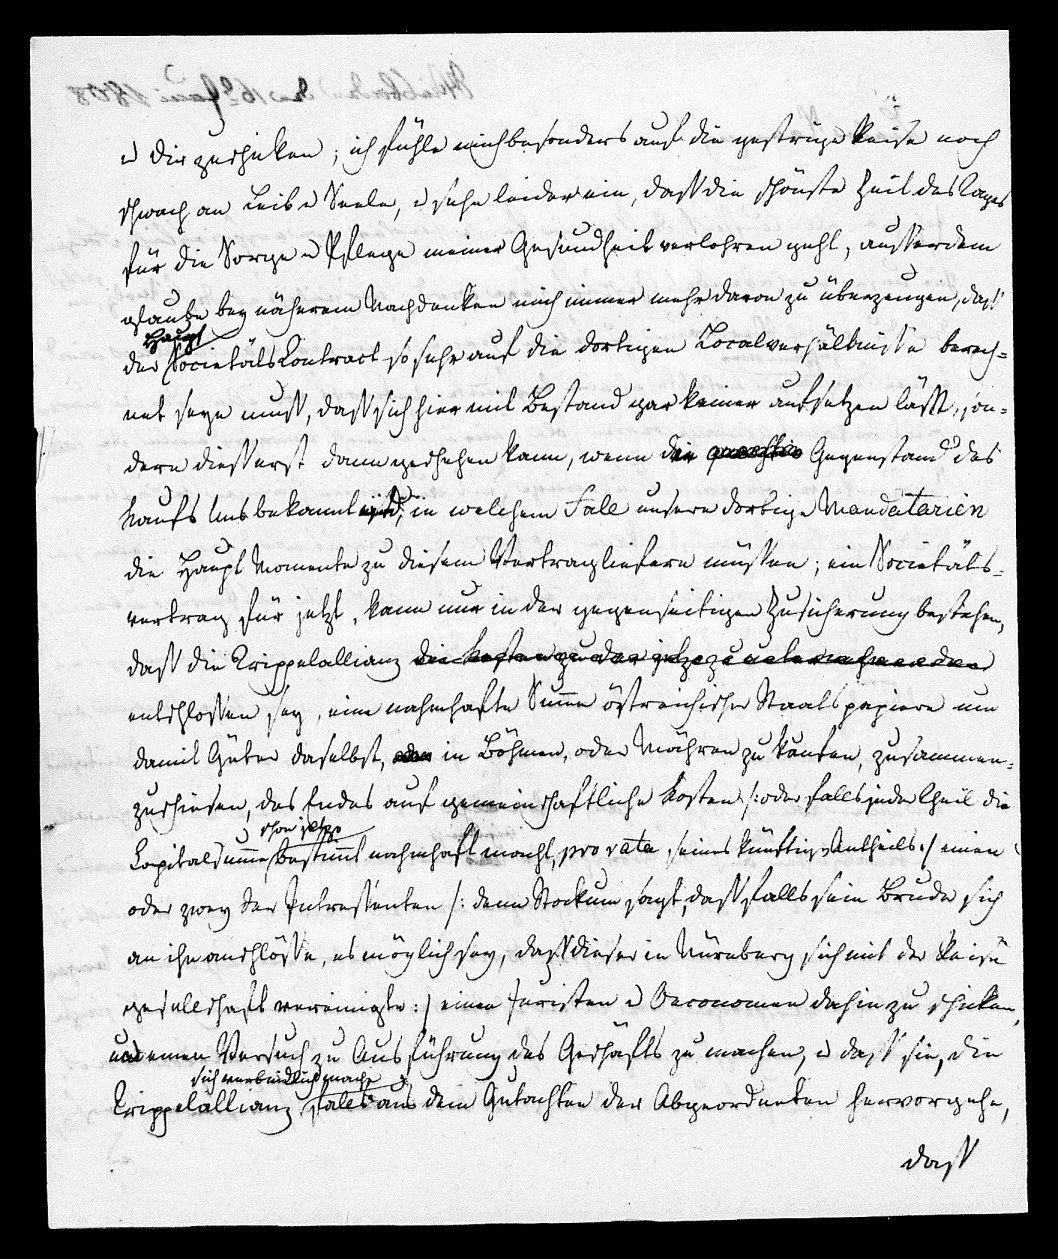 u dir zuschicken; ich fühle mich besonders auf die gestrige Reise noch
schwach an Leib u Seele, u sehe leider ein, dass die schönste Zeit des Tages
für die Sorge u Pflege meiner Gesundheit verlohren geht, ausserdem
glaube bey näherem Nachdenken mich immer mehr davon zu überzeugen, dass
Haupt
der Societäts Contract so sehr auf die dortigen Localverhältnisse berech-
net seyn muss, dass sich hier mit Bestand gar keiner aufsetzen lässt, son-
dern dies erst dann geschehen kann, wenn der Gegenstand des
Kaufs uns bekannt ist, in welchem Fall unsere dortige Mandatarien
die Haupt Momente zu diesem Vertrag liefern müssen; ein Societäts-
vertrag für jetzt, kann nur in der gegenseitigen Zusicherung bestehen,
dass die Trippelallianz die Kosten zu der jetzo zu unternehmenden
entschlossen sey, eine nahmhafte Summe östreichischer Staatspapiere um
damit Güter daselbst, oder in Böhmen, oder Mähren zu kaufen, zusammen-
zuschiesen, des Endes auf gemeinschaftliche Kosten /: oder falls jeder Theil die
schon jetzo
Capitalsumme bestimmt nahmhaft macht, pro rata seines künftigen Antheils :/ einen
oder zwey der Intressenten /: denn Stockum sagt, dass falls sein Bruder sich
an ihn anschlösse, es möglich sey, dass dieser in Nürnberg sich mit der Reise
gesellschaft vereinigte :/ einen Juristen u Oeconomen dahin zu schicken,
und einen Versuch zu Ausführung des Geschäfts zu machen, u dass sie, die
sich verbindlich mache
Trippelallianz falls aus dem Gutachten der Abgeordneten hervorgehe,
dass